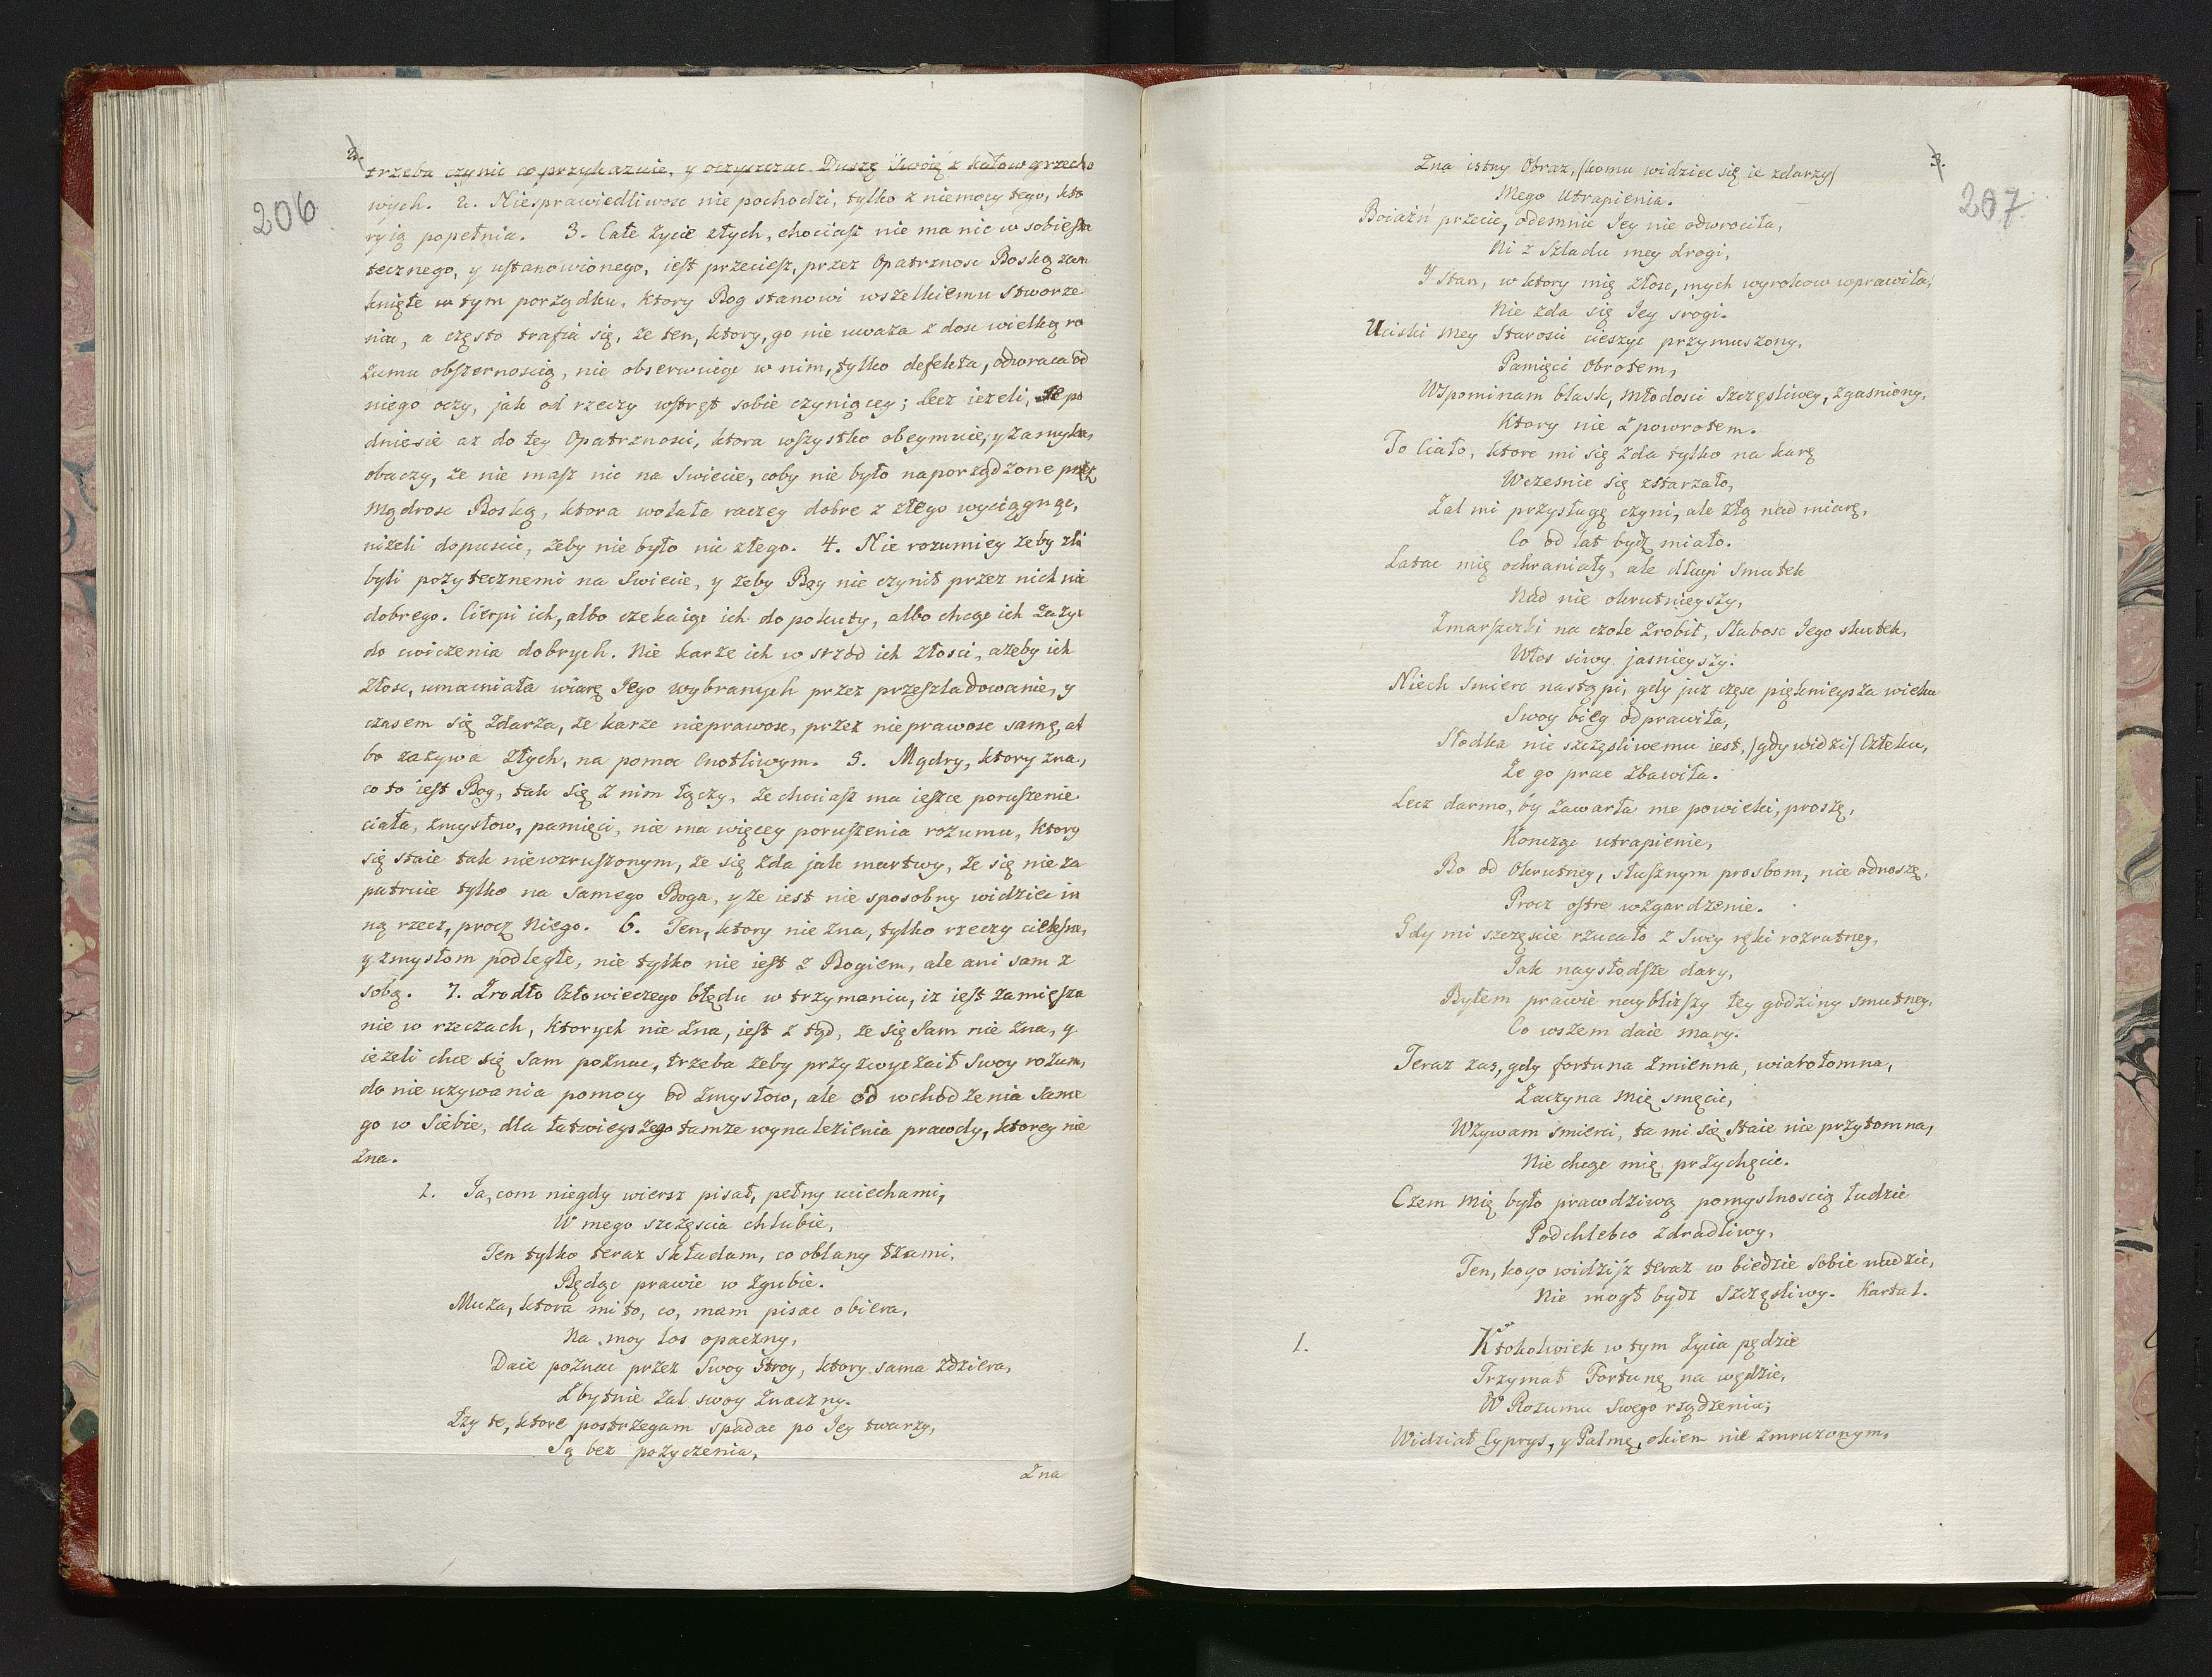 2.
206
trzeba czynic co przykazuie, y oczyszczac Duszę Swoię z kałow grzecho
wych. 2. Niesprawiedliwosc nie pochodzi, tylko z niemocy tego, kto
ry ią popełnia. 3. Całe życie złych, chociasz nie ma nic w sobie sta
tecznego, y ustanowionego, iest przeciesz, przez Opatrznosc Boską zam
knięte w tym porządku, ktory Bog stanowi wszelkiemu Stworze
niu, a często trafia się, że ten, ktory, go nie uważa z dosc wielką ro
zumu obszernoscią, nie obserwuiąc w nim, tylko defekta, odwraca od
niego oczy, jak od rzeczy wstręt sobie czyniącey; Lecz ieżeli, Je po
dniesie aż do tey Opatrznosci, ktora wszystko obeymuie, y zamyka,
obaczy, że nie masz nic na Swiecie, coby nie było naporządzone przez
Mądrosc Boską, ktora wolała raczey dobre z złego wyciągnąc,
niżeli dopuscic, żeby nie było nic złego. 4. Nie rozumiey żeby zli
byli pożytecznemi na Swiecie, y żeby Bog nie czynił przez nich nic
dobrego. Cierpi ich, albo czekaiąc ich do pokuty, albo chcąc ich Zażyc
do cwiczenia dobrych. Nie karze ich w srzod ich złosci, ażeby ich
Złosc, umacniała wiarę Jego wybranych przez przeszladowanie, y
czasem się Zdarza, że karze nieprawosc, przez nieprawosc samę, al
bo zażywa Złych, na pomoc Cnotliwym. 5. Mądry, ktory zna,
co to iest Bog, tak się z nim łączy, że chociasz ma ieszcze poruszenie
ciała, zmysłow, pamięci, nie ma więcey poruszenia rozumu, ktory
się staie tak niewzruszonym, że się zda jak martwy, że się nie za
patruie tylko na Samego Boga, y że iest nie sposobny widziec in
ną rzecz, procz Niego. 6. Ten, ktory nie zna, tylko rzeczy cielesne,
y zmysłom podległe, nie tylko nie iest z Bogiem, ale ani sam z
sobą. 7. Zrodło Człowieczego błędu w trzymaniu, iż iest zamiesza
nie w rzeczach, ktorych nie zna, iest z tąd, że się Sam nie zna, y
ieżeli chce się Sam poznac, trzeba żeby przyzwyczaił Swoy rozum,
do nie używania pomocy od zmysłow, ale od wchodzenia Same
go w Siebie, dla łatwieyszego tamże wynalezienia prawdy, ktorey nie
zna.
1. Ja, com niegdy wiersz pisał, pełny uciechami,
W mego szczęscia chlubie,
Ten tylko teraz składam, co oblany łzami,
Będąc prawie w zgubie.
Muza, ktora mi to, co, mam pisac obiera,
Na moy los opaczny,
Daie poznac przez Swoy Stroy, ktory sama zdziera,
Zbytnie żal swoy znaczny.
Łzy te, ktore postrzegam spadac po Jey twarzy,
Są bez pożyczenia,
Zna
3.
207
Zna istny Obraz, (komu widziec się ie zdarzy)
Mego Utrapienia.
Boiaźń przecie, odemnie Jey nie odwrociła,
Ni z Szladu mey drogi,
I Stan, w ktory mię złosc, mych wyrokow wprawiła,
Nie zda się Jey srogi.
Uciski mey Starosci cieszyc przymuszony,
Pamięci Obrotem,
Wspominam blask, młodosci Szczęsliwey, zgasniony,
Ktory nie z powrotem.
To Ciało, ktore mi się zda tylko na karę
Wczesnie się zstarzało,
Żal mi przysługę czyni, ale złą nad miarę,
Co od lat bydź miało.
Latac mię ochraniały, ale długi Smutek
Nad nie okrutnieyszy,
Zmarszczki na czole zrobił, słabosc Jego skutek,
Włos siwy jasnieyszy.
Niech Smierc nastąpi, gdy już częsc pięknieysza wieku
Swoy bieg odprawiła,
Słodka nie szczęsliwemu iest, (gdy widzi) Człeku,
Że go prac zbawiła.
Lecz darmo, by zawarła me powieki, proszę,
Koncząc utrapienie,
Bo od Okrutney, słusznym prosbom, nie odnoszę,
Procz ostre wzgardzenie.
Gdy mi szczęscie rzucało z Swey ręki rozratney,
Jak naysłodsze dary,
Byłem prawie naybliższy tey godziny smutney,
Co wszem daie mary.
Teraz zas, gdy fortuna zmienna, wiarołomna,
Zaczyna mię smęcic,
Wzywam smierci, ta mi się staie nie przytomna,
Nie chcąc mię przychęcic.
Czem mię było prawdziwą pomyslnoscią łudzic
Podchlebco zdradliwy,
Ten, kogo widzisz teraz w biedzie Sobie nudzic,
Nie mogł bydz Szczęsliwy. Karta 1.
1. Ktokolwiek w tym życia pędzie
Trzymał Fortunę na wędzie,
W Rozumu Swego rządzeniu;
Widział Cyprys, y Palmę, okiem nie zmrużonym,